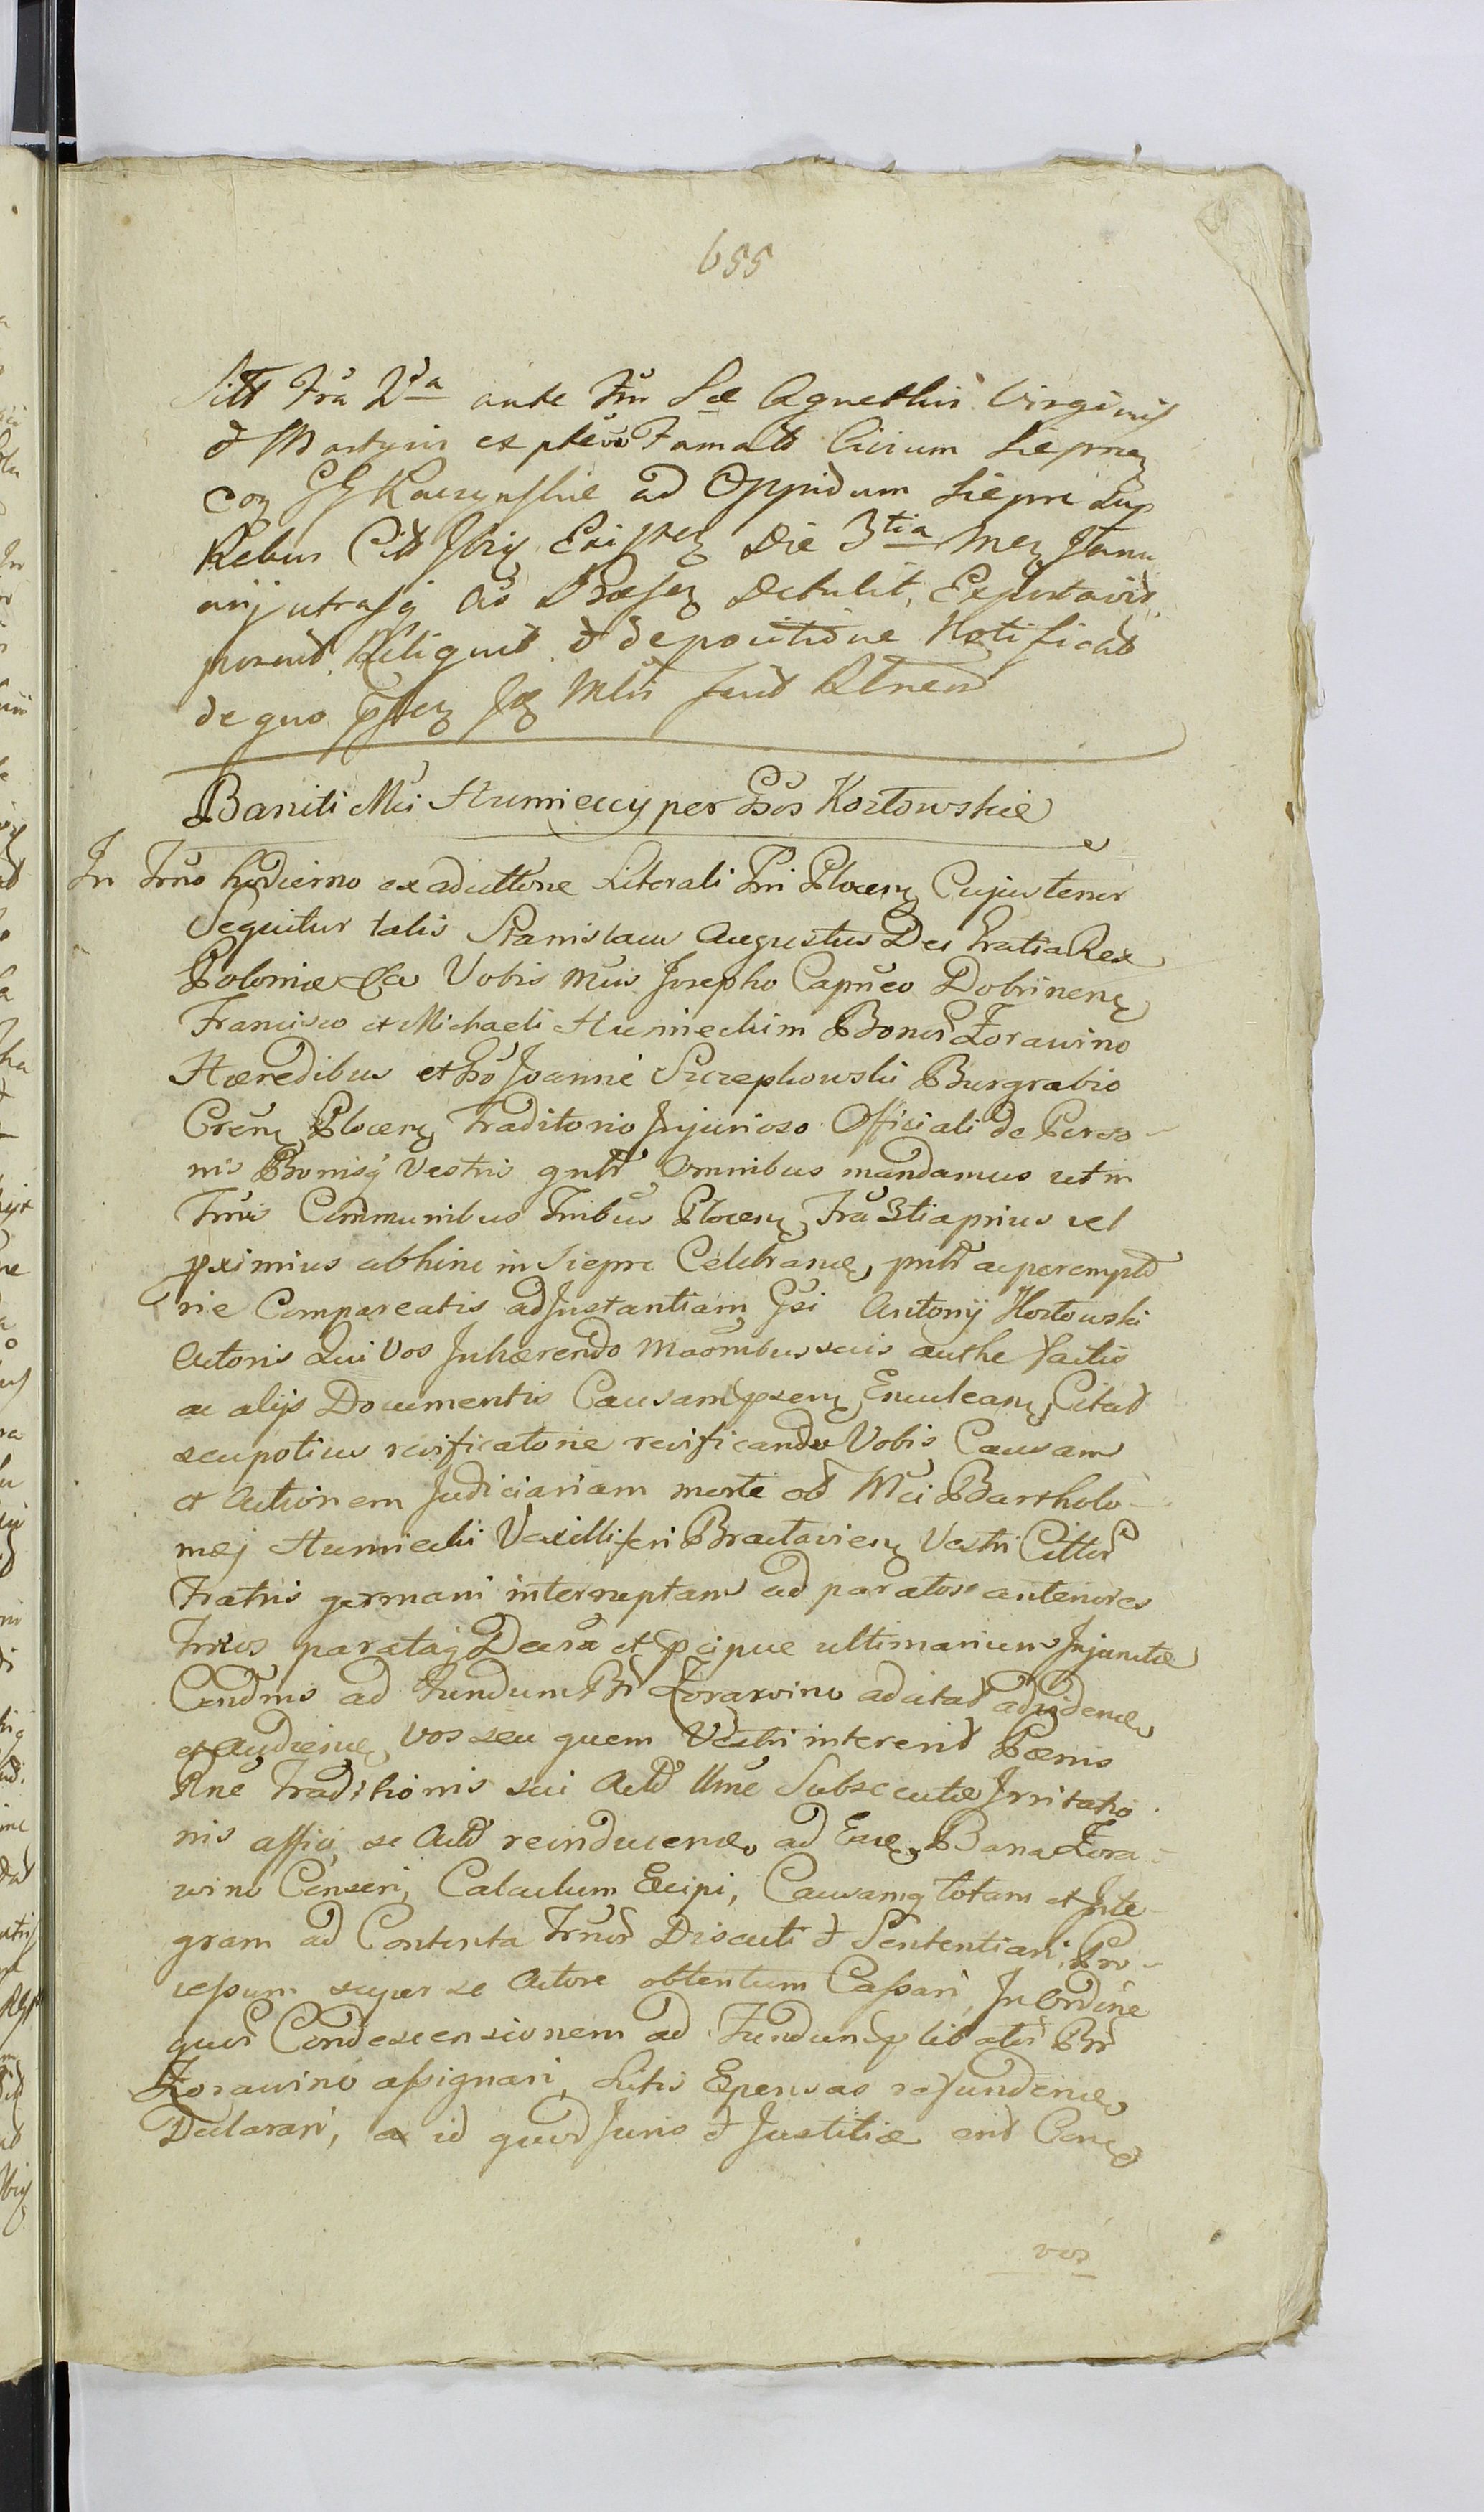 655
Fra 2da ante Fm Sæ Agnethis Virginis
& Martyris ex Famato Civium Sieprcen
cog Kaczynskie ad Oppidum Siepre Sup
Rebus Citt Die 3tia Men Janu
arij utrasq Ao Præsen Detulit, Exportavit,
posuit Reliquit & de positione Notificat
de quo Mtri fecit Rltnem
Baniti Mci Humieccy per Gsos Kozłowskie
In Trno hodierno ex adcittone Literali Tri Plocen Cujus tenor
Sequitur talis Stanislaus Augustus Dei Gratia Rex
Poloniæ &a Vobis Mcis Josepho Capneo Dobrinen
Francisco et Michaeli Humieckim Bonor Zorawino
Hæredibus et Gso Joanni Szczepkowski Burgrabio
Cren Plocen Traditorio Injurioso Officiali de Perso-
nis Bonisq Vestris gnlr Omnibus mandamus ut in
Trnis Communibus Tribus Plocen Fra 3tia prius vel
pximius abhinc in Siepre Celebrand, pntr ac perempto
rie Compareatis ad Instantiam Gsi Antonij Kozłowski
Actoris Qui Vos Inhærendo Maombus suis authe factis
ac alijs Documentis Causam psen Enuclean, Citat
seu potius reificatorie reificando Vobis Causam
et Actionem Judiciariam morte ol Mci Bartholo-
mæj Humiecki Vexilliferi Bractavien Vestri Cittor
Fratris germani interruptam ad paratos anteriores
Trnos parataq Decra et pcipue ultimarium Injunctæ
Condnis ad Fundum Br Zorawino adcitat ad vidend
et Audiend, Vos seu quem Vestri intererit Pænis
Rne Traditionis sui Act Ume Subsecutæ Irritatio
nis affici, se Act reinducend, ad Ead, Bona Zora-
wino Censeri, Calculum Excipi, Causamq totam et Inte-
gram ad Contenta Trnor Discuti & Sententiari, Pro-
cessum super se Actore obtentum Cassari, In Ordine
quor Condescensionem ad Fundum plibator Br
Zorawino assignari, Litis Expensas refundend,
Declarari, ac id quod Juris & Justitiæ erit Cond
vos